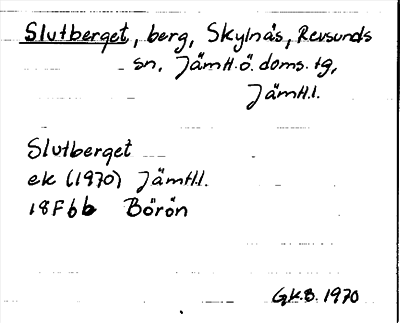 Slutberget, berg, Skylnäs, Revsunds
sn, Jämtl.ö.doms.tg,
Jämtl.l.
Slutberget
ek (1970) Jämtl.l.
18F6b Börön
G.K.B. 1970